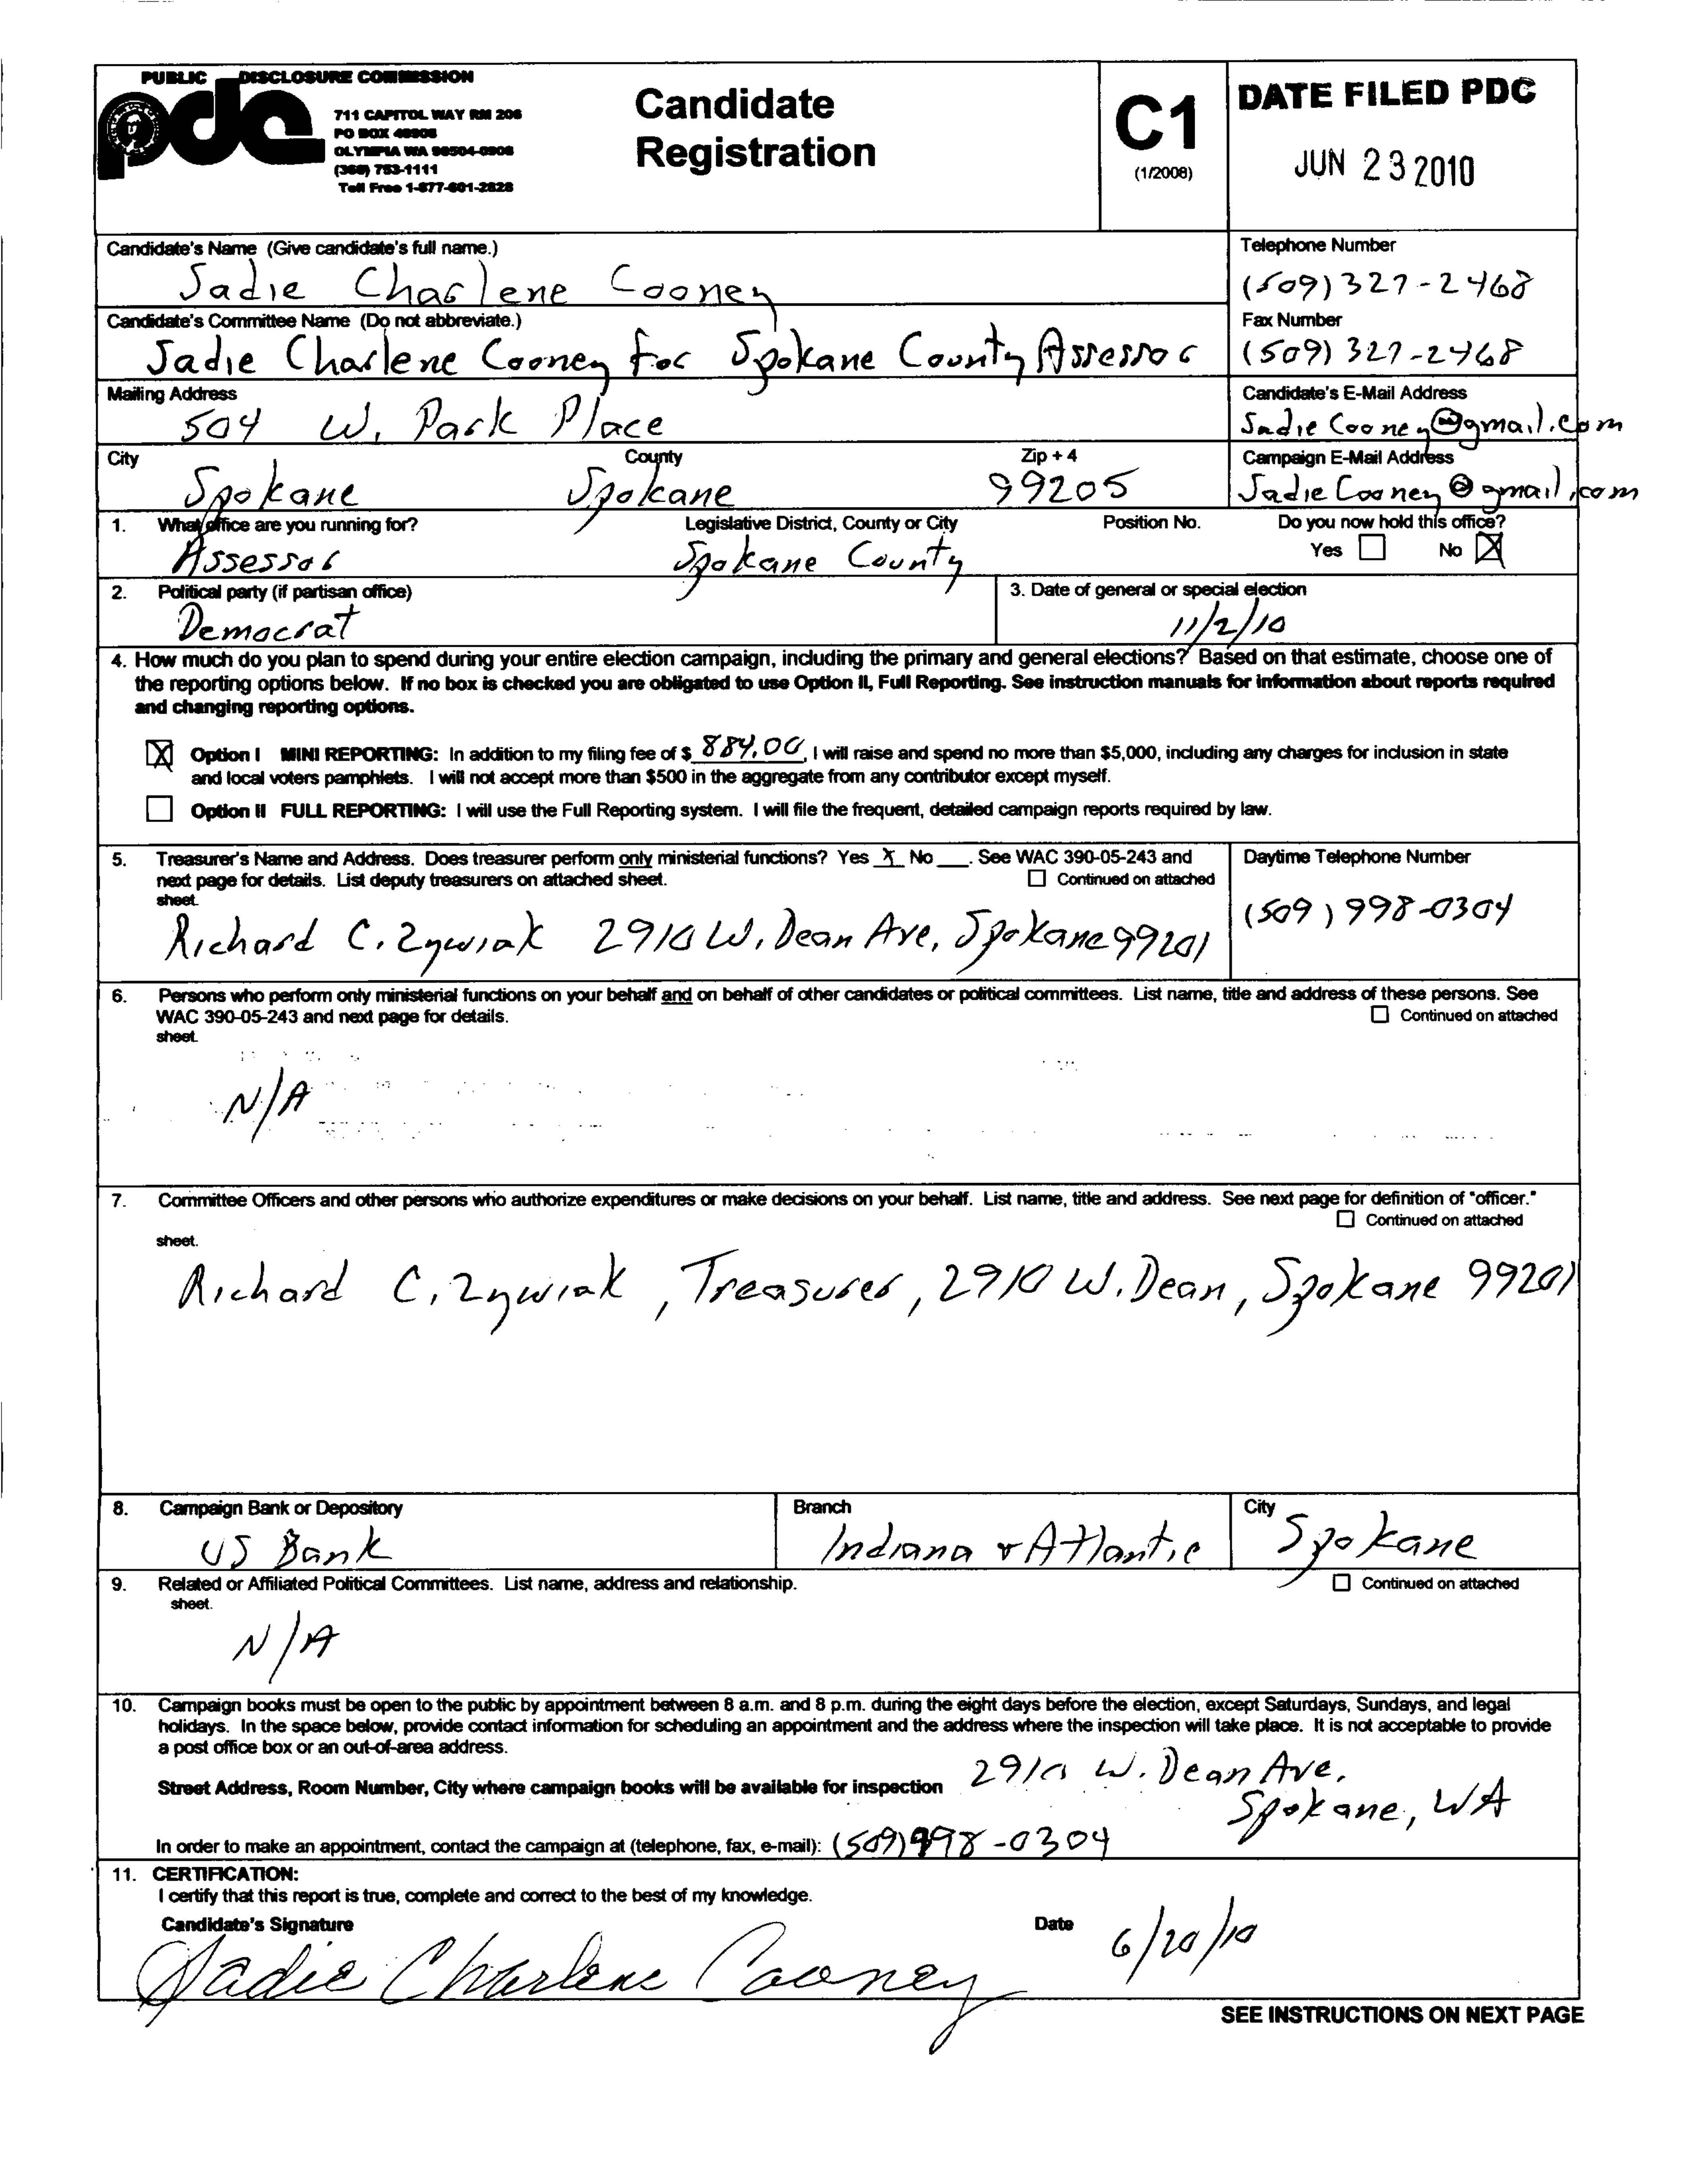 PUBLIC DISCLOSURE COMMISSION
pdc
711 CAPITOL WAY RM 206
PO BOX 40908
OLYMPIA WA 98504-0908
(360) 753-1111
Toll Free 1-877-601-2828
Candidate
Registration
C1
(1/2008)
DATE FILED PDC
JUN 23 2010
Candidate's Name (Give candidate's full name.)
Sadie Charlene Cooney
Telephone Number
(509) 327-2468
Candidate's Committee Name (Do not abbreviate.)
Sadie Charlene Cooney for Spokane County Assessor
Fax Number
(509) 327-2468
Mailing Address
504 W. Park Place
Candidate's E-Mail Address
SadieCooney@gmail.com
City County Zip + 4
Spokane Spokane 99205
Campaign E-Mail Address
SadieCooney@gmail.com
1. What office are you running for? Legislative District, County or City Position No. Do you now hold this office?
Assessor Spokane County Yes No X
2. Political party (if partisan office)
Democrat
3. Date of general or special election
11/2/10
4. How much do you plan to spend during your entire election campaign, including the primary and general elections? Based on that estimate, choose one of
the reporting options below. If no box is checked you are obligated to use Option II, Full Reporting. See instruction manuals for information about reports required
and changing reporting options.
X Option I MINI REPORTING: In addition to my filing fee of $ 884.00, I will raise and spend no more than $5,000, including any charges for inclusion in state
and local voters pamphlets. I will not accept more than $500 in the aggregate from any contributor except myself.
Option II FULL REPORTING: I will use the Full Reporting system. I will file the frequent, detailed campaign reports required by law.
5. Treasurer's Name and Address. Does treasurer perform only ministerial functions? Yes X No ___. See WAC 390-05-243 and
next page for details. List deputy treasurers on attached sheet. Continued on attached
sheet.
Richard C. Zywiak 2910 W. Dean Ave, Spokane 99201
Daytime Telephone Number
(509) 998-0304
6. Persons who perform only ministerial functions on your behalf and on behalf of other candidates or political committees. List name, title and address of these persons. See
WAC 390-05-243 and next page for details. Continued on attached
sheet.
N/A
7. Committee Officers and other persons who authorize expenditures or make decisions on your behalf. List name, title and address. See next page for definition of "officer."
Continued on attached
sheet.
Richard C. Zywiak, Treasurer, 2910 W. Dean, Spokane 99201
8. Campaign Bank or Depository
US Bank
Branch
Indiana + Atlantic
City
Spokane
9. Related or Affiliated Political Committees. List name, address and relationship. Continued on attached
sheet.
N/A
10. Campaign books must be open to the public by appointment between 8 a.m. and 8 p.m. during the eight days before the election, except Saturdays, Sundays, and legal
holidays. In the space below, provide contact information for scheduling an appointment and the address where the inspection will take place. It is not acceptable to provide
a post office box or an out-of-area address.
Street Address, Room Number, City where campaign books will be available for inspection 2910 W. Dean Ave.
Spokane, WA
In order to make an appointment, contact the campaign at (telephone, fax, e-mail): (509) 998-0304
11. CERTIFICATION:
I certify that this report is true, complete and correct to the best of my knowledge.
Candidate's Signature Date 6/20/10
Sadie Charlene Cooney
SEE INSTRUCTIONS ON NEXT PAGE